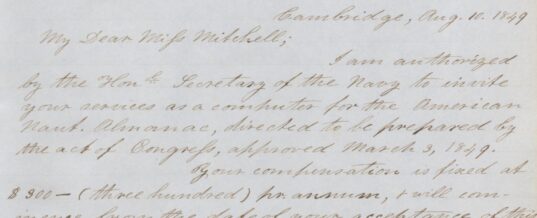 Cambridge, Aug. 10. 1849
My Dear Miss Mitchell;
I am authorized
by the Honle. Secretary of the Navy to invite
your services as a computer for the American
Naut. Almanac, directed to be prepared by
the act of Congress, approved March 3, 1849.
Your compensation is fixed at
$300— (three hundred) pr. annum, & will com-
mence from the date of your acceptance of this